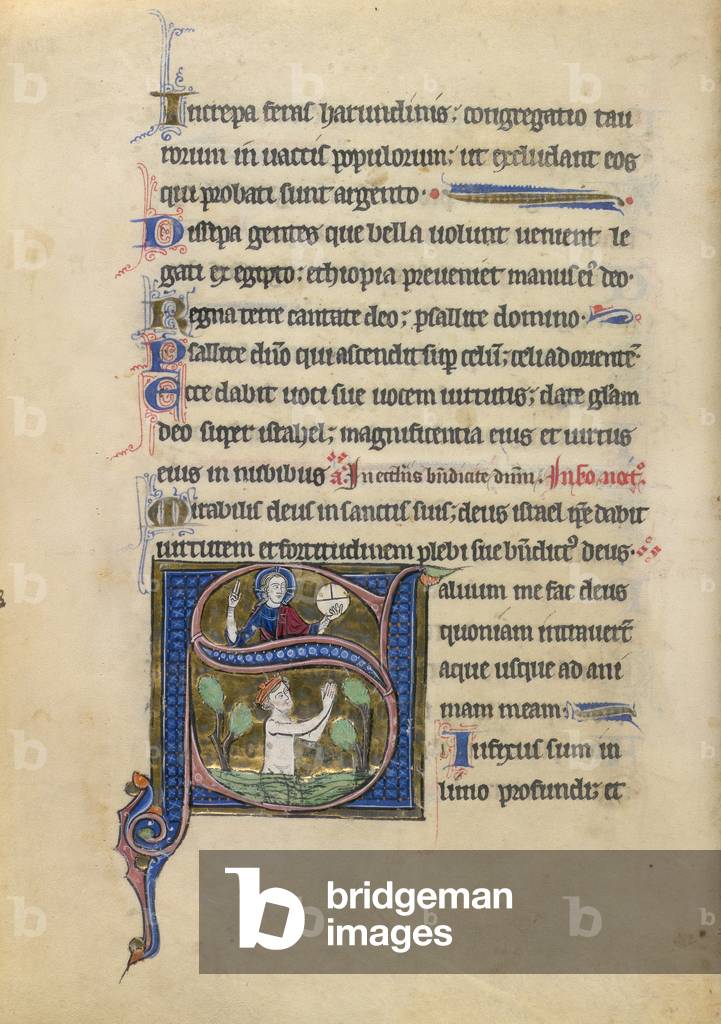 Increpa feras harundinis; congregatio tau
rorum in uaccis populorum; ut excludant eos
qui probati sunt argento.
Dissipa gentes que bella uolunt uenient le
gati ex egipto: ethiopia preueniet manus ei' deo.
Regna terre cantate deo; psallite domino.
Psallite dño qui ascendit sup celũ; celi ad orientẽ.
Ecce dabit uoci sue uocem uirtutis; date glãm
deo super israhel; magnificentia eius et uirtus
eius in nubibus a. In eccl'iis bñdicite dñm.
Mirabilis deus in sanctis suis; deus israel ipse dabit
uirtutem et fortitudinem plebi sue bñdict' deus.
Saluum me fac deus
quoniam intrauerũt
aque usque ad ani
mam meam.
Infixus sum in
limo profundi; et
b bridgeman
images